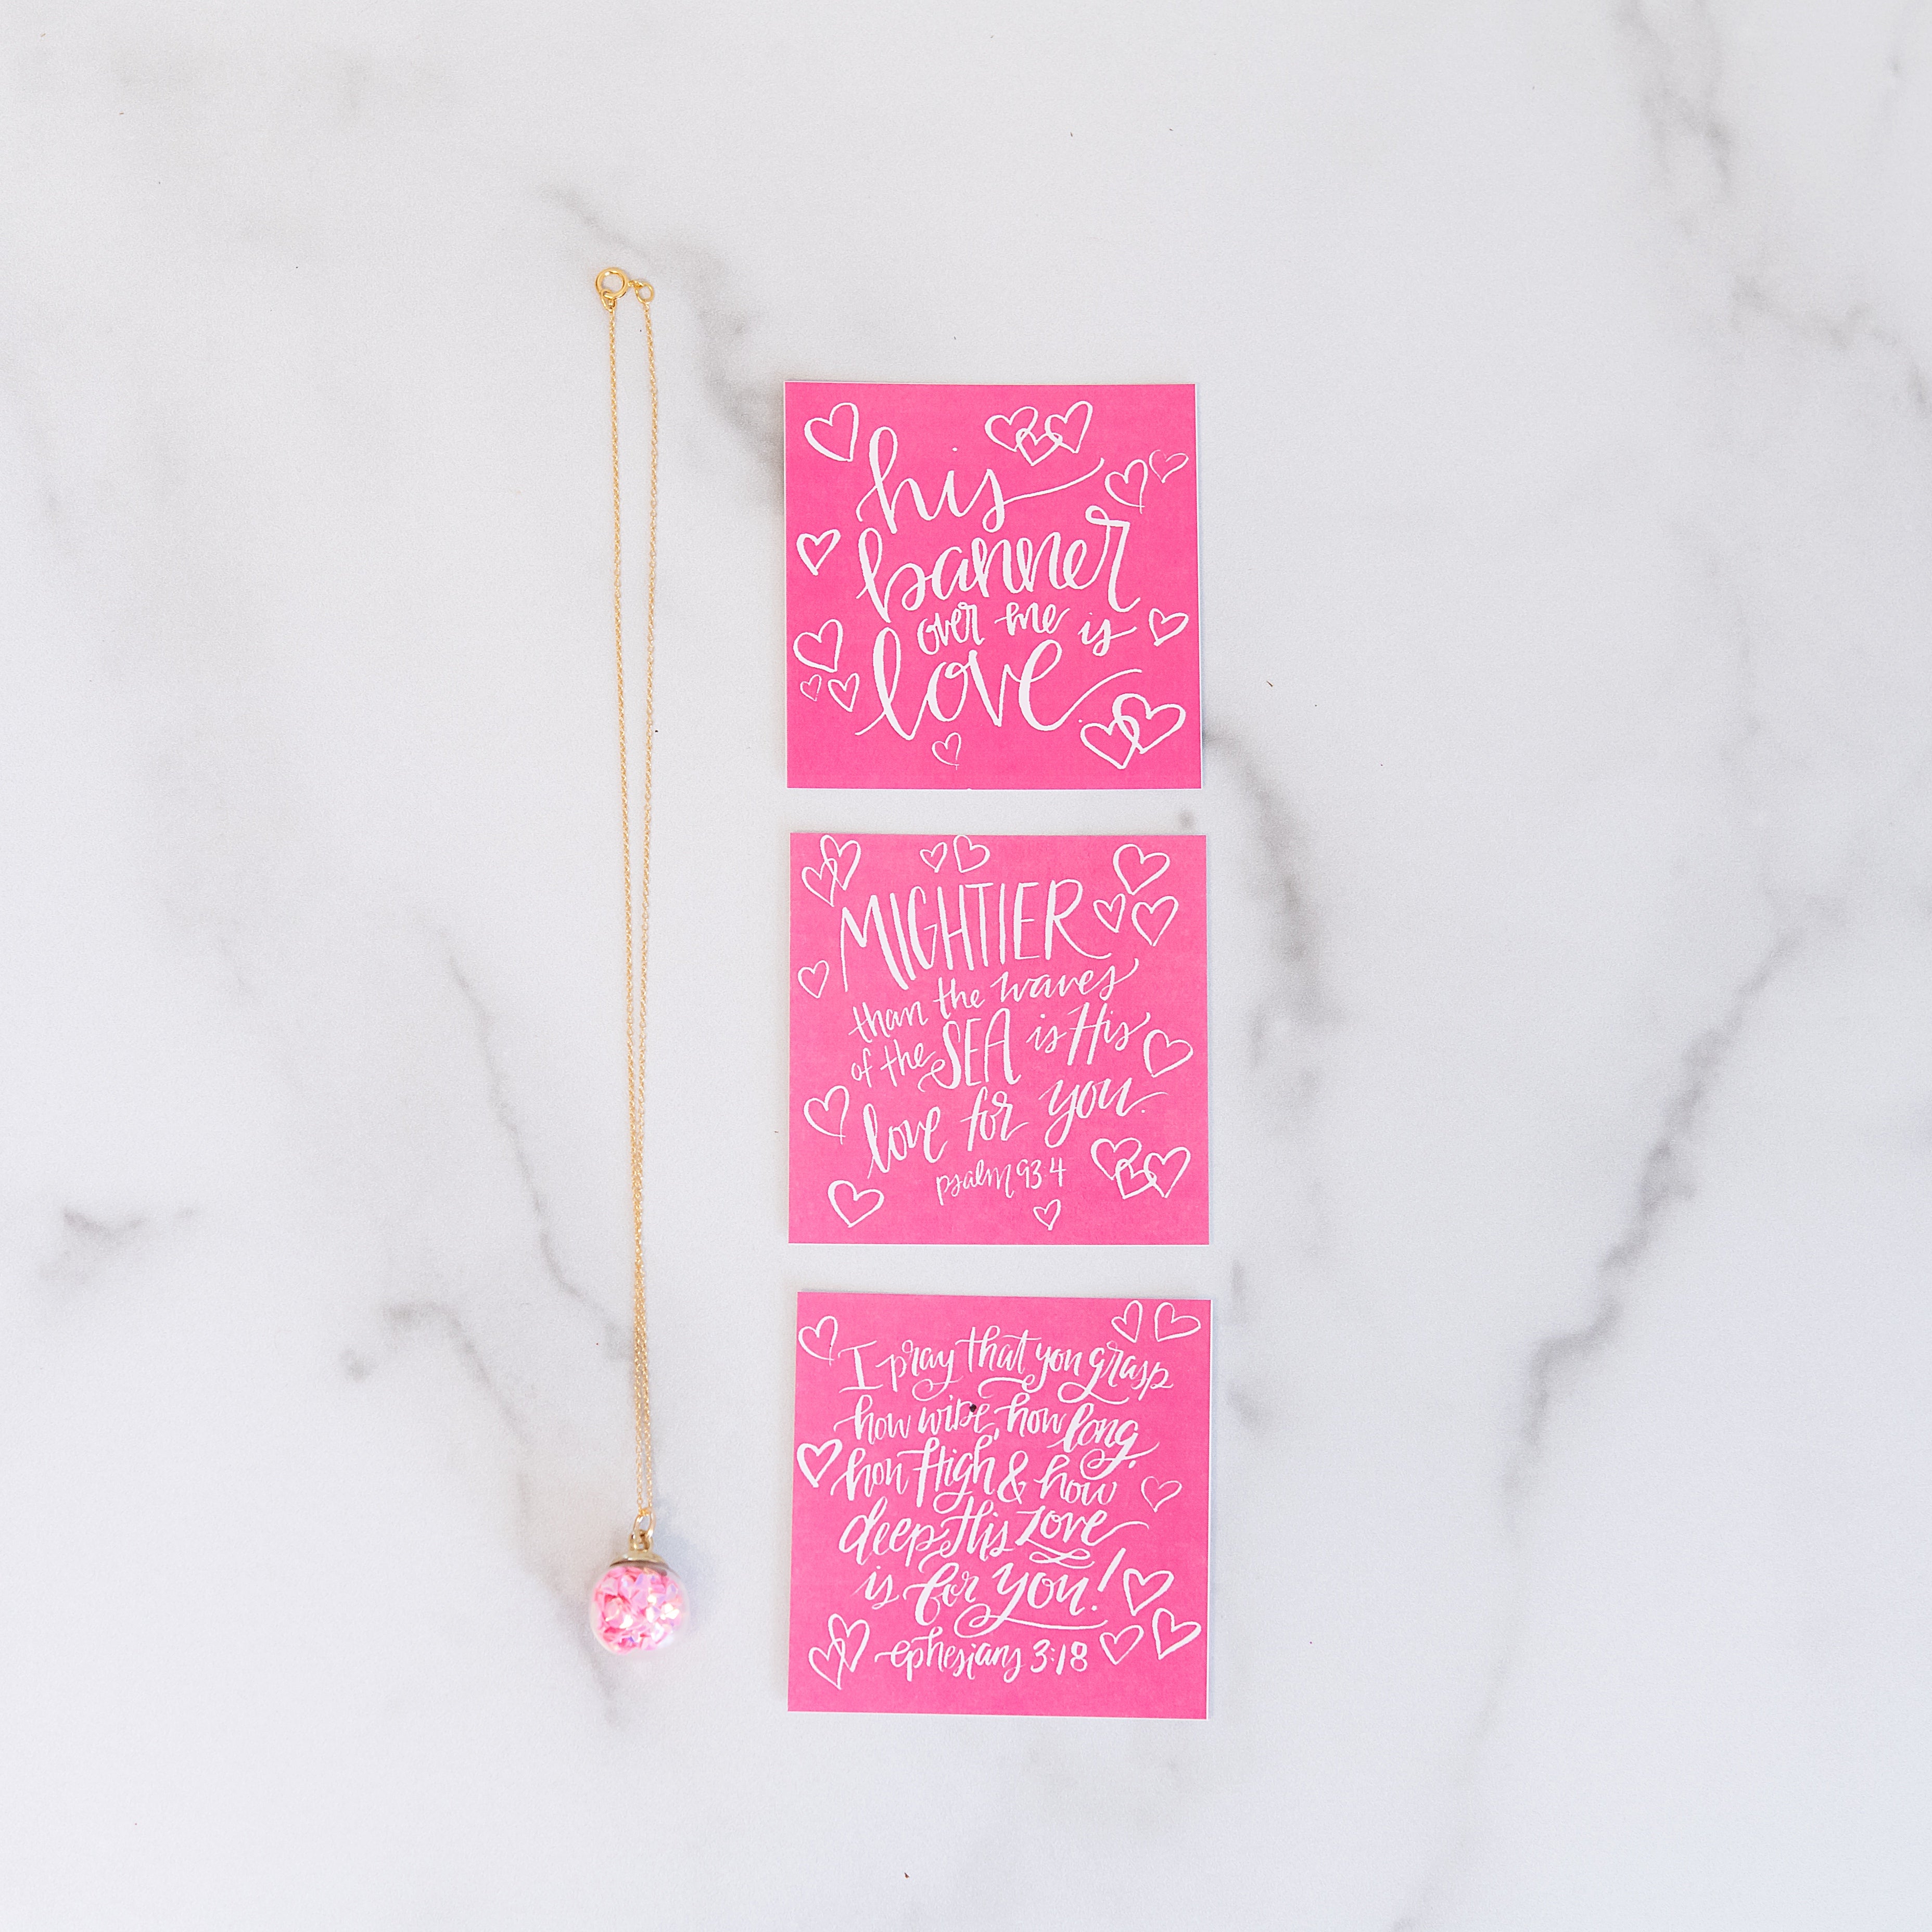 his
banner
over me is
love
MIGHTIER
than the waves
of the SEA is His
love for you.
psalm 93 4
I pray that you grasp
how wide, how long,
how High & how
deep His Love
is for you!
ephesians 3:18